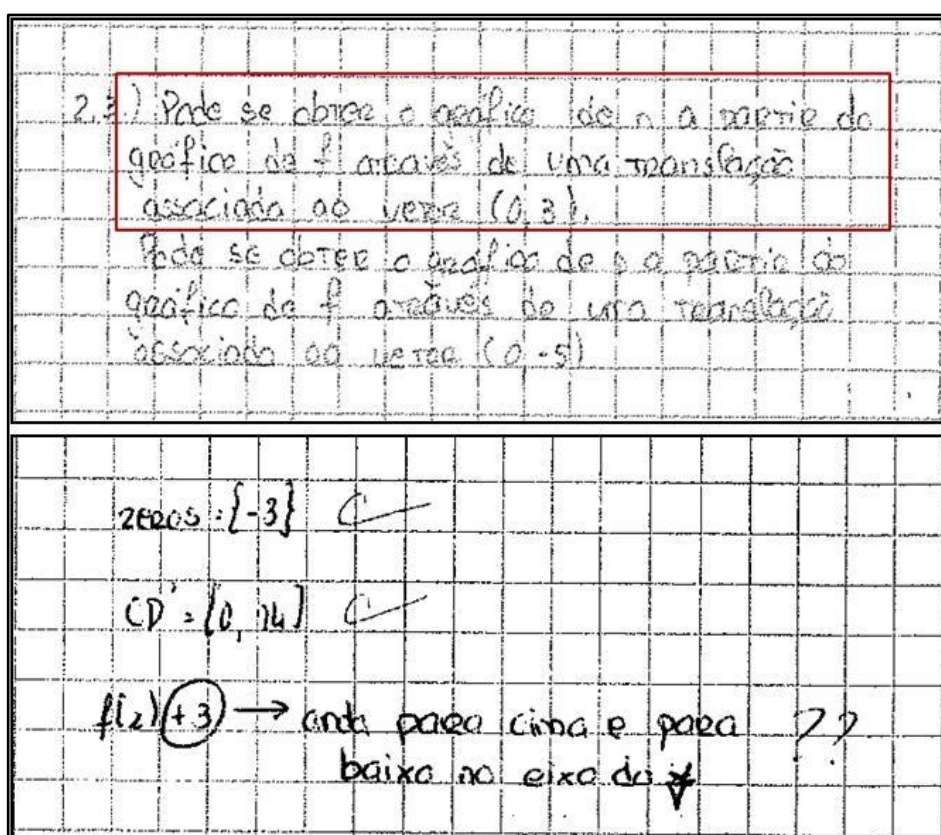 2.3.) Pode se obter o gráfico de n a partir do
gráfico de f através de uma translação
associada ao vetor (0,3).
Pode se obter o gráfico de s a partir do
gráfico de f através de uma translação
associada ao vetor (0,-5)
zeros = {-3}
CD' = [0, 14]
f(2) +3 → anda para cima e para ??
baixo no eixo do y